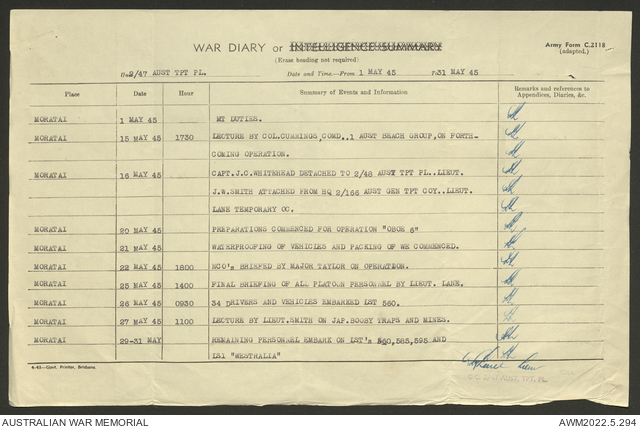 WAR DIARY or INTELLIGENCE SUMMARY
Army Form C.2118
(adapted.)
(Erase heading not required)
2/47 AUST TPT PL. Date and Time.—From 1 MAY 45 31 MAY 45
Place Date Hour Summary of Events and Information Remarks and references to
Appendices, Diaries, &c.
MORATAI 1 MAY 45 MT DUTIES.
MORATAI 15 MAY 45 1730 LECTURE BY COL.CUMMINGS,COMD.,1 AUST BEACH GROUP,ON FORTH-
COMING OPERATION.
MORATAI 16 MAY 45 CAPT.J.C.WHITEHEAD DETACHED TO 2/48 AUST TPT PL..LIEUT.
J.W.SMITH ATTACHED FROM HQ 2/166 AUST GEN TPT COY..LIEUT.
LANE TEMPORARY OC.
MORATAI 20 MAY 45 PREPARATIONS COMMENCED FOR OPERATION "OBOE 6"
MORATAI 21 MAY 45 WATERPROOFING OF VEHICLES AND PACKING OF WE COMMENCED.
MORATAI 22 MAY 45 1800 NCO's BRIEFED BY MAJOR TAYLOR ON OPERATION.
MORATAI 25 MAY 45 1400 FINAL BRIEFING OF ALL PLATOON PERSONNEL BY LIEUT. LANE.
MORATAI 26 MAY 45 0930 34 DRIVERS AND VEHICLES EMBARKED LST 560.
MORATAI 27 MAY 45 1100 LECTURE BY LIEUT.SMITH ON JAP.BOOBY TRAPS AND MINES.
MORATAI 29-31 MAY REMAINING PERSONNEL EMBARK ON LST's 560,585,595 AND
LSI "WESTRALIA"
4-43—Govt. Printer, Brisbane.
AUST. TPT. PL
AUSTRALIAN WAR MEMORIAL AWM2022.5.294